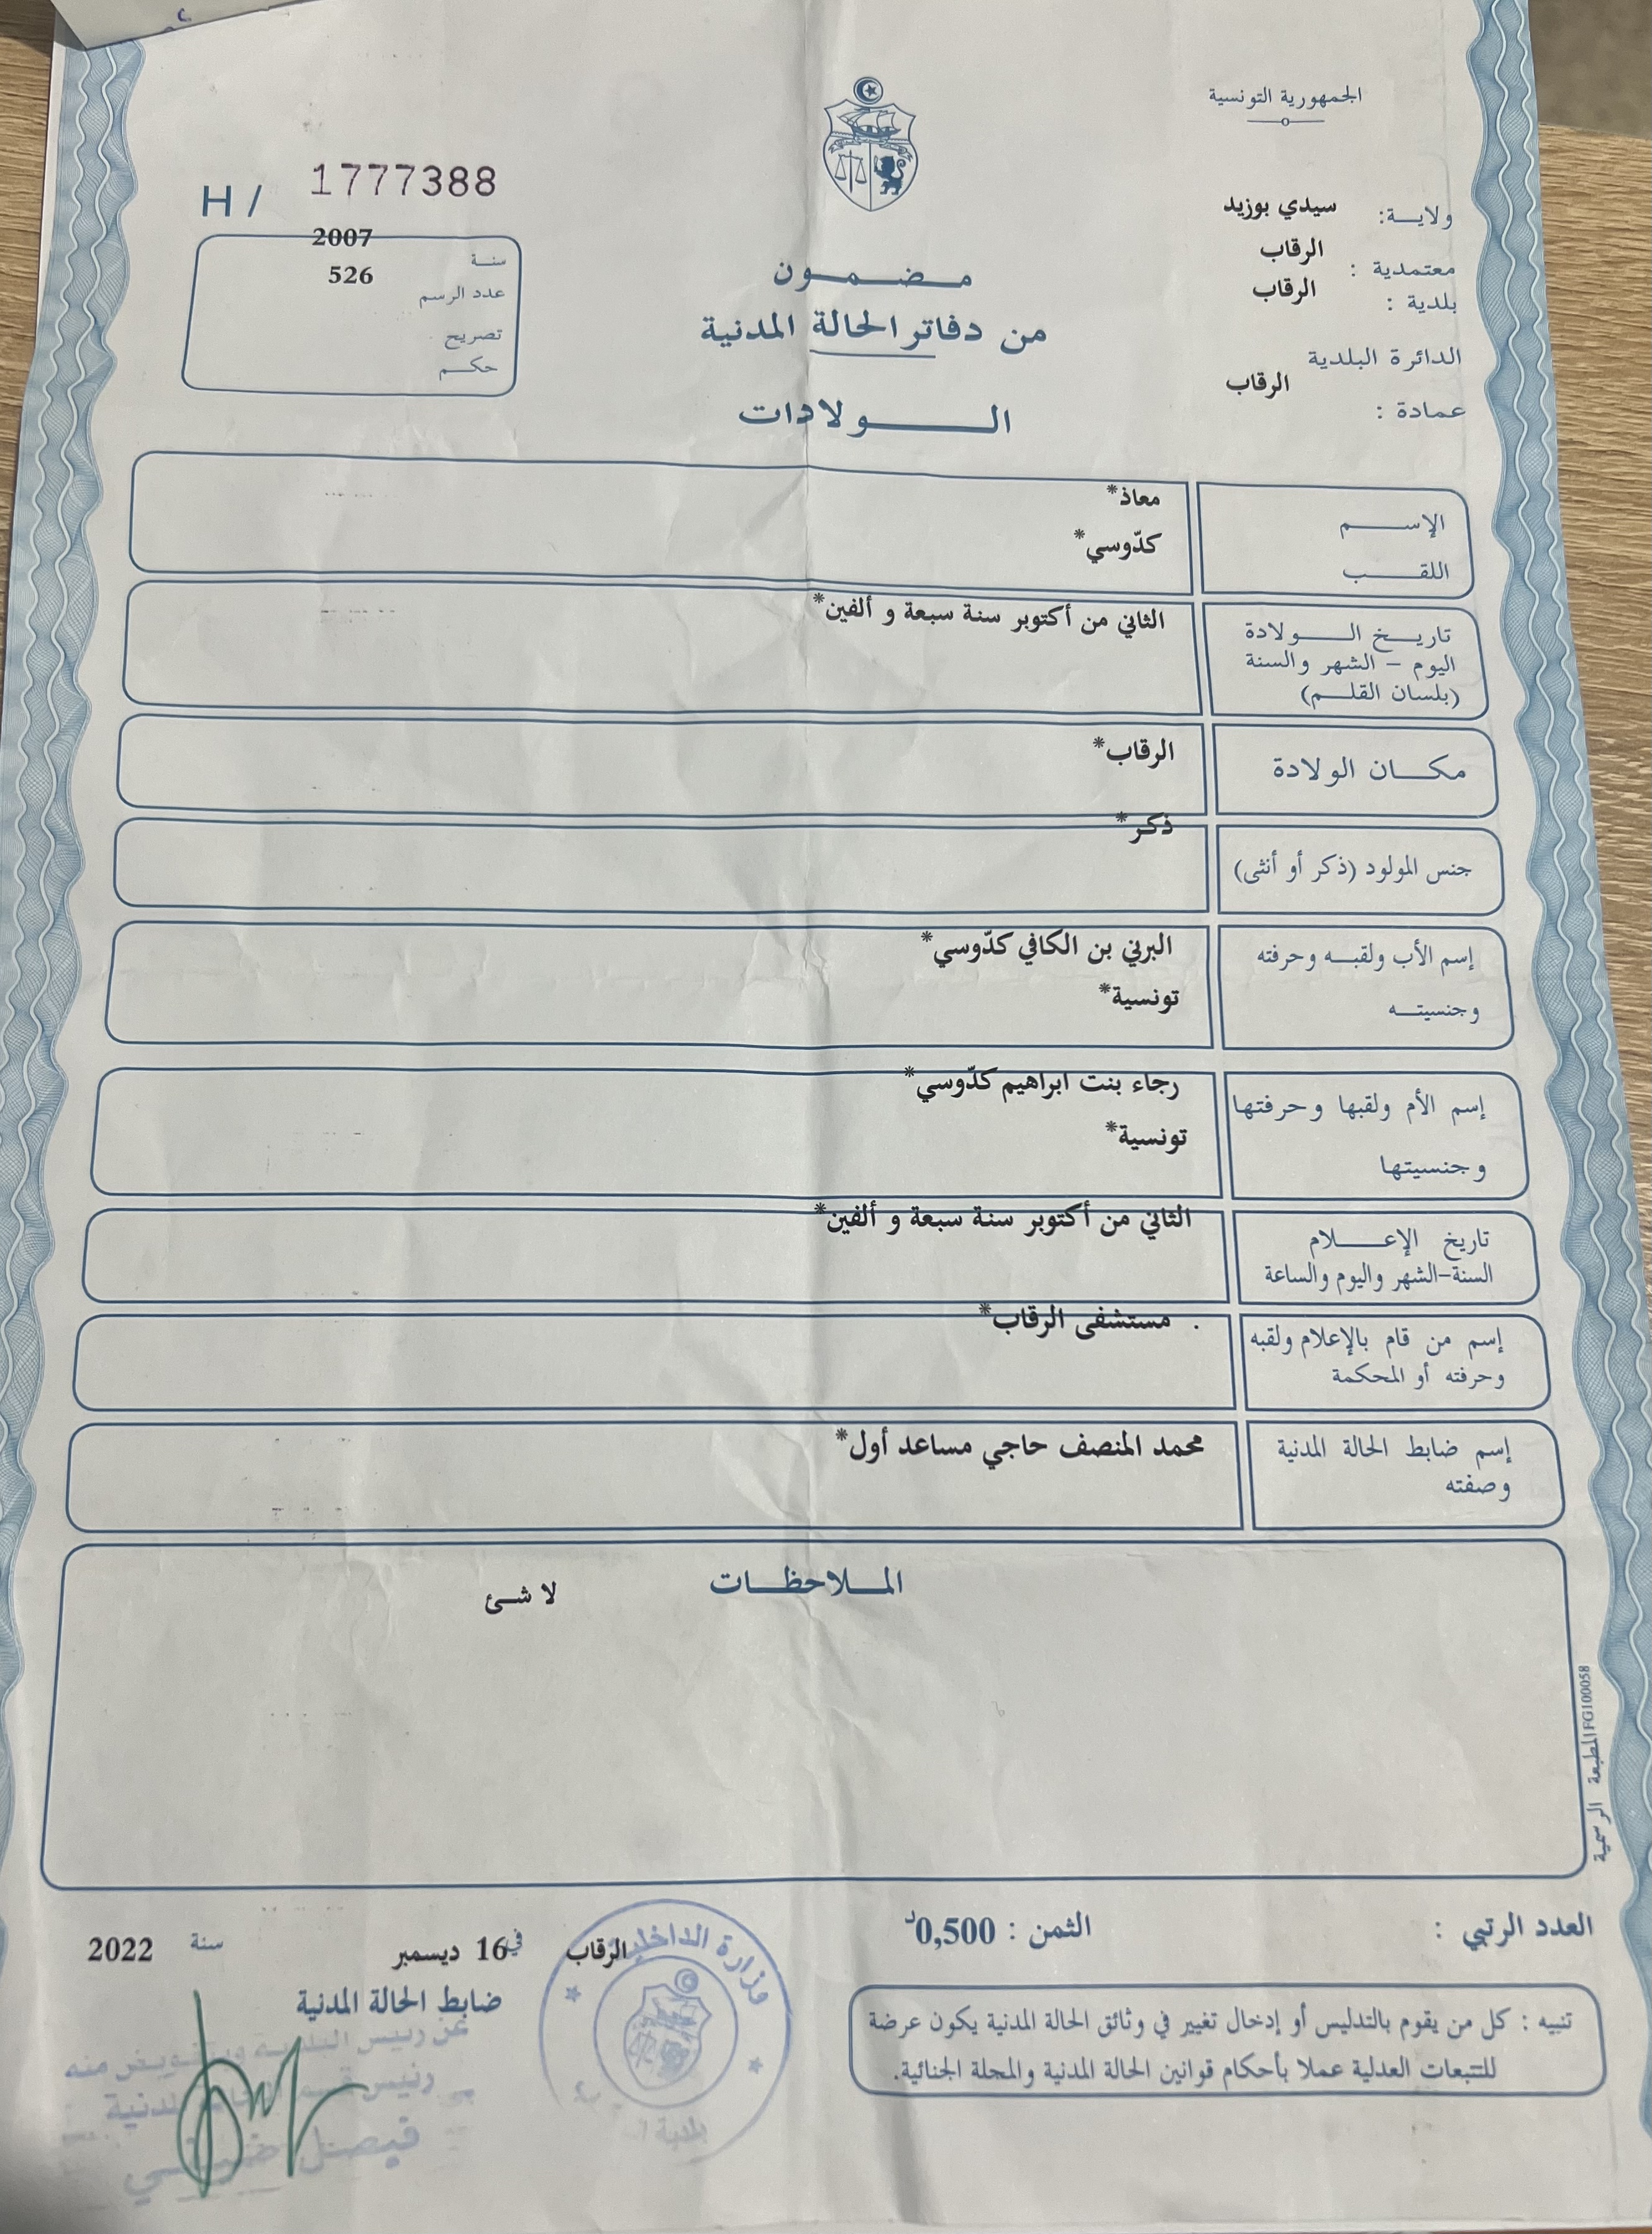 الجمهورية التونسية
ولاية: سيدي بوزيد
معتمدية : الرقاب
بلدية : الرقاب
الدائرة البلدية
عمادة : الرقاب
H / 1777388
سنة 2007
عدد الرسم 526
تصريح
حكم
مضمون
من دفاتر الحالة المدنية
الولادات
الإسم معاذ*
اللقب كدّوسي*
تاريخ الولادة الثاني من أكتوبر سنة سبعة و ألفين*
اليوم - الشهر والسنة
(بلسان القلم)
مكان الولادة الرقاب*
جنس المولود (ذكر أو أنثى) ذكر*
إسم الأب ولقبه وحرفته البرني بن الكافي كدّوسي*
وجنسيته تونسية*
إسم الأم ولقبها وحرفتها رجاء بنت ابراهيم كدّوسي*
وجنسيتها تونسية*
تاريخ الإعلام الثاني من أكتوبر سنة سبعة و ألفين*
السنة-الشهر واليوم والساعة
إسم من قام بالإعلام ولقبه . مستشفى الرقاب*
وحرفته أو المحكمة
إسم ضابط الحالة المدنية محمد المنصف حاجي مساعد أول*
وصفته
الملاحظات
لا شئ
المطبعة الرسمية FG100058
العدد الرتبي :
الثمن : 0,500د
الرقاب في 16 ديسمبر سنة 2022
ضابط الحالة المدنية
عن رئيس البلدية وبتفويض منه
رئيس قسم الحالة المدنية
فيصل
وزارة الداخلية
بلدية
تنبيه : كل من يقوم بالتدليس أو إدخال تغيير في وثائق الحالة المدنية يكون عرضة
للتتبعات العدلية عملا بأحكام قوانين الحالة المدنية والمجلة الجنائية.